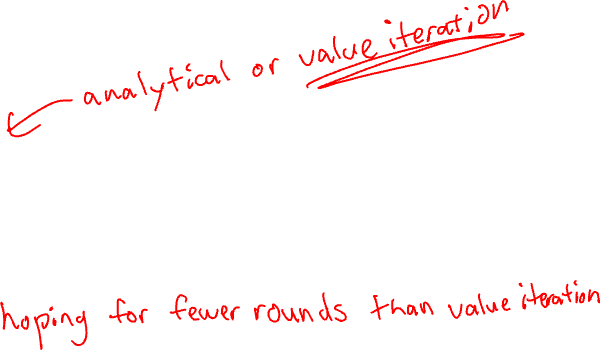 analytical or value iteration
hoping for fewer rounds than value iteration